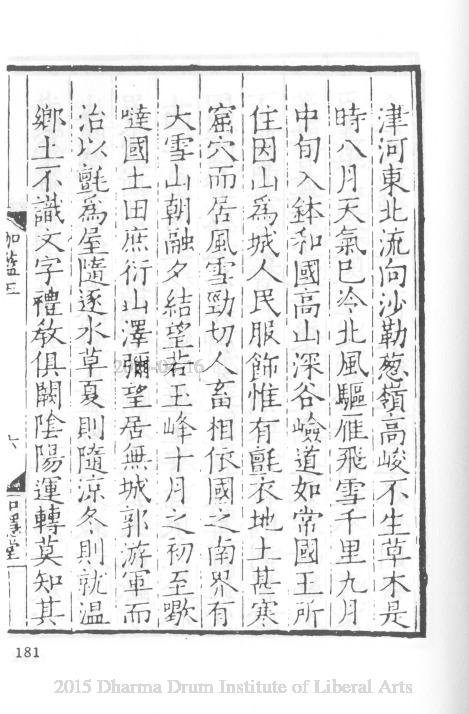 津河東北流向沙勒葱嶺高峻不生草木是
時八月天氣已冷北風驅雁飛雪千里九月
中旬入鉢和國高山深谷嶮道如常國王所
住因山爲城人民服飾惟有氈衣地土甚寒
窟穴而居風雪勁切人畜相依國之南界有
大雪山朝融夕結望若玉峰十月之初至歇
噠國土田庶衍山澤彌望居無城郭游軍而
治以氈爲屋隨逐水草夏則隨凉冬則就温
鄉土不識文字禮教俱闕陰陽運轉莫知其
伽藍五
六
181
2015 Dharma Drum Institute of Liberal Arts